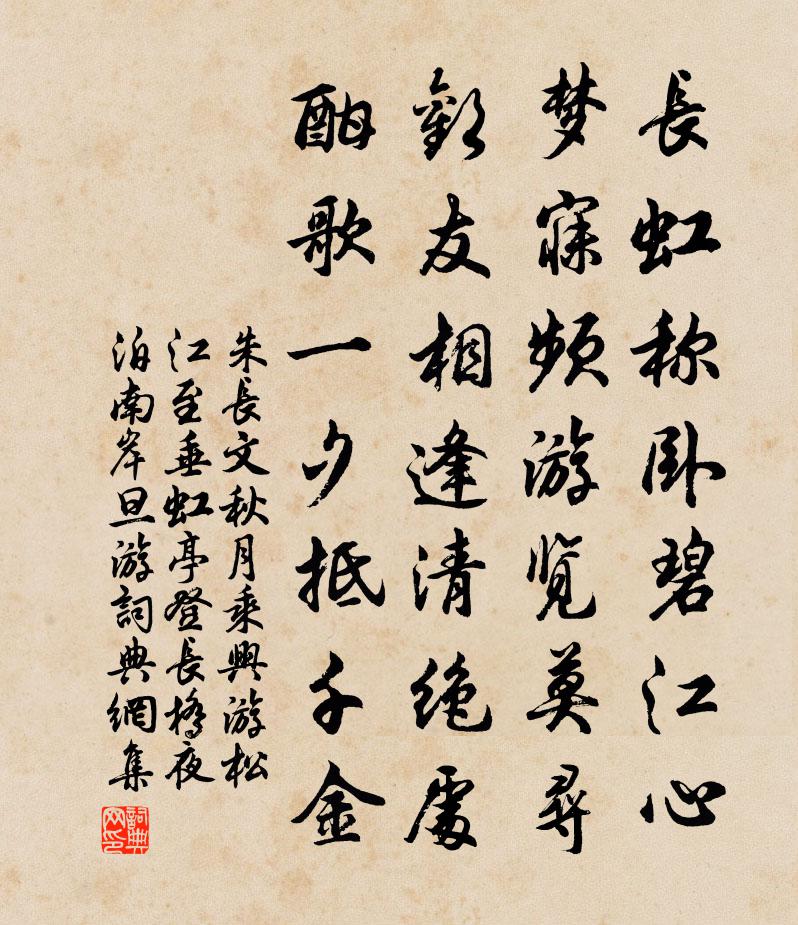 長虹称卧碧江心
梦寐频游览莫尋
歡友相逢清绝處
酣歌一夕抵千金
朱長文秋月乘興游松
江至垂虹亭登長橋夜
泊南岸旦游詞典網集
詞典网印